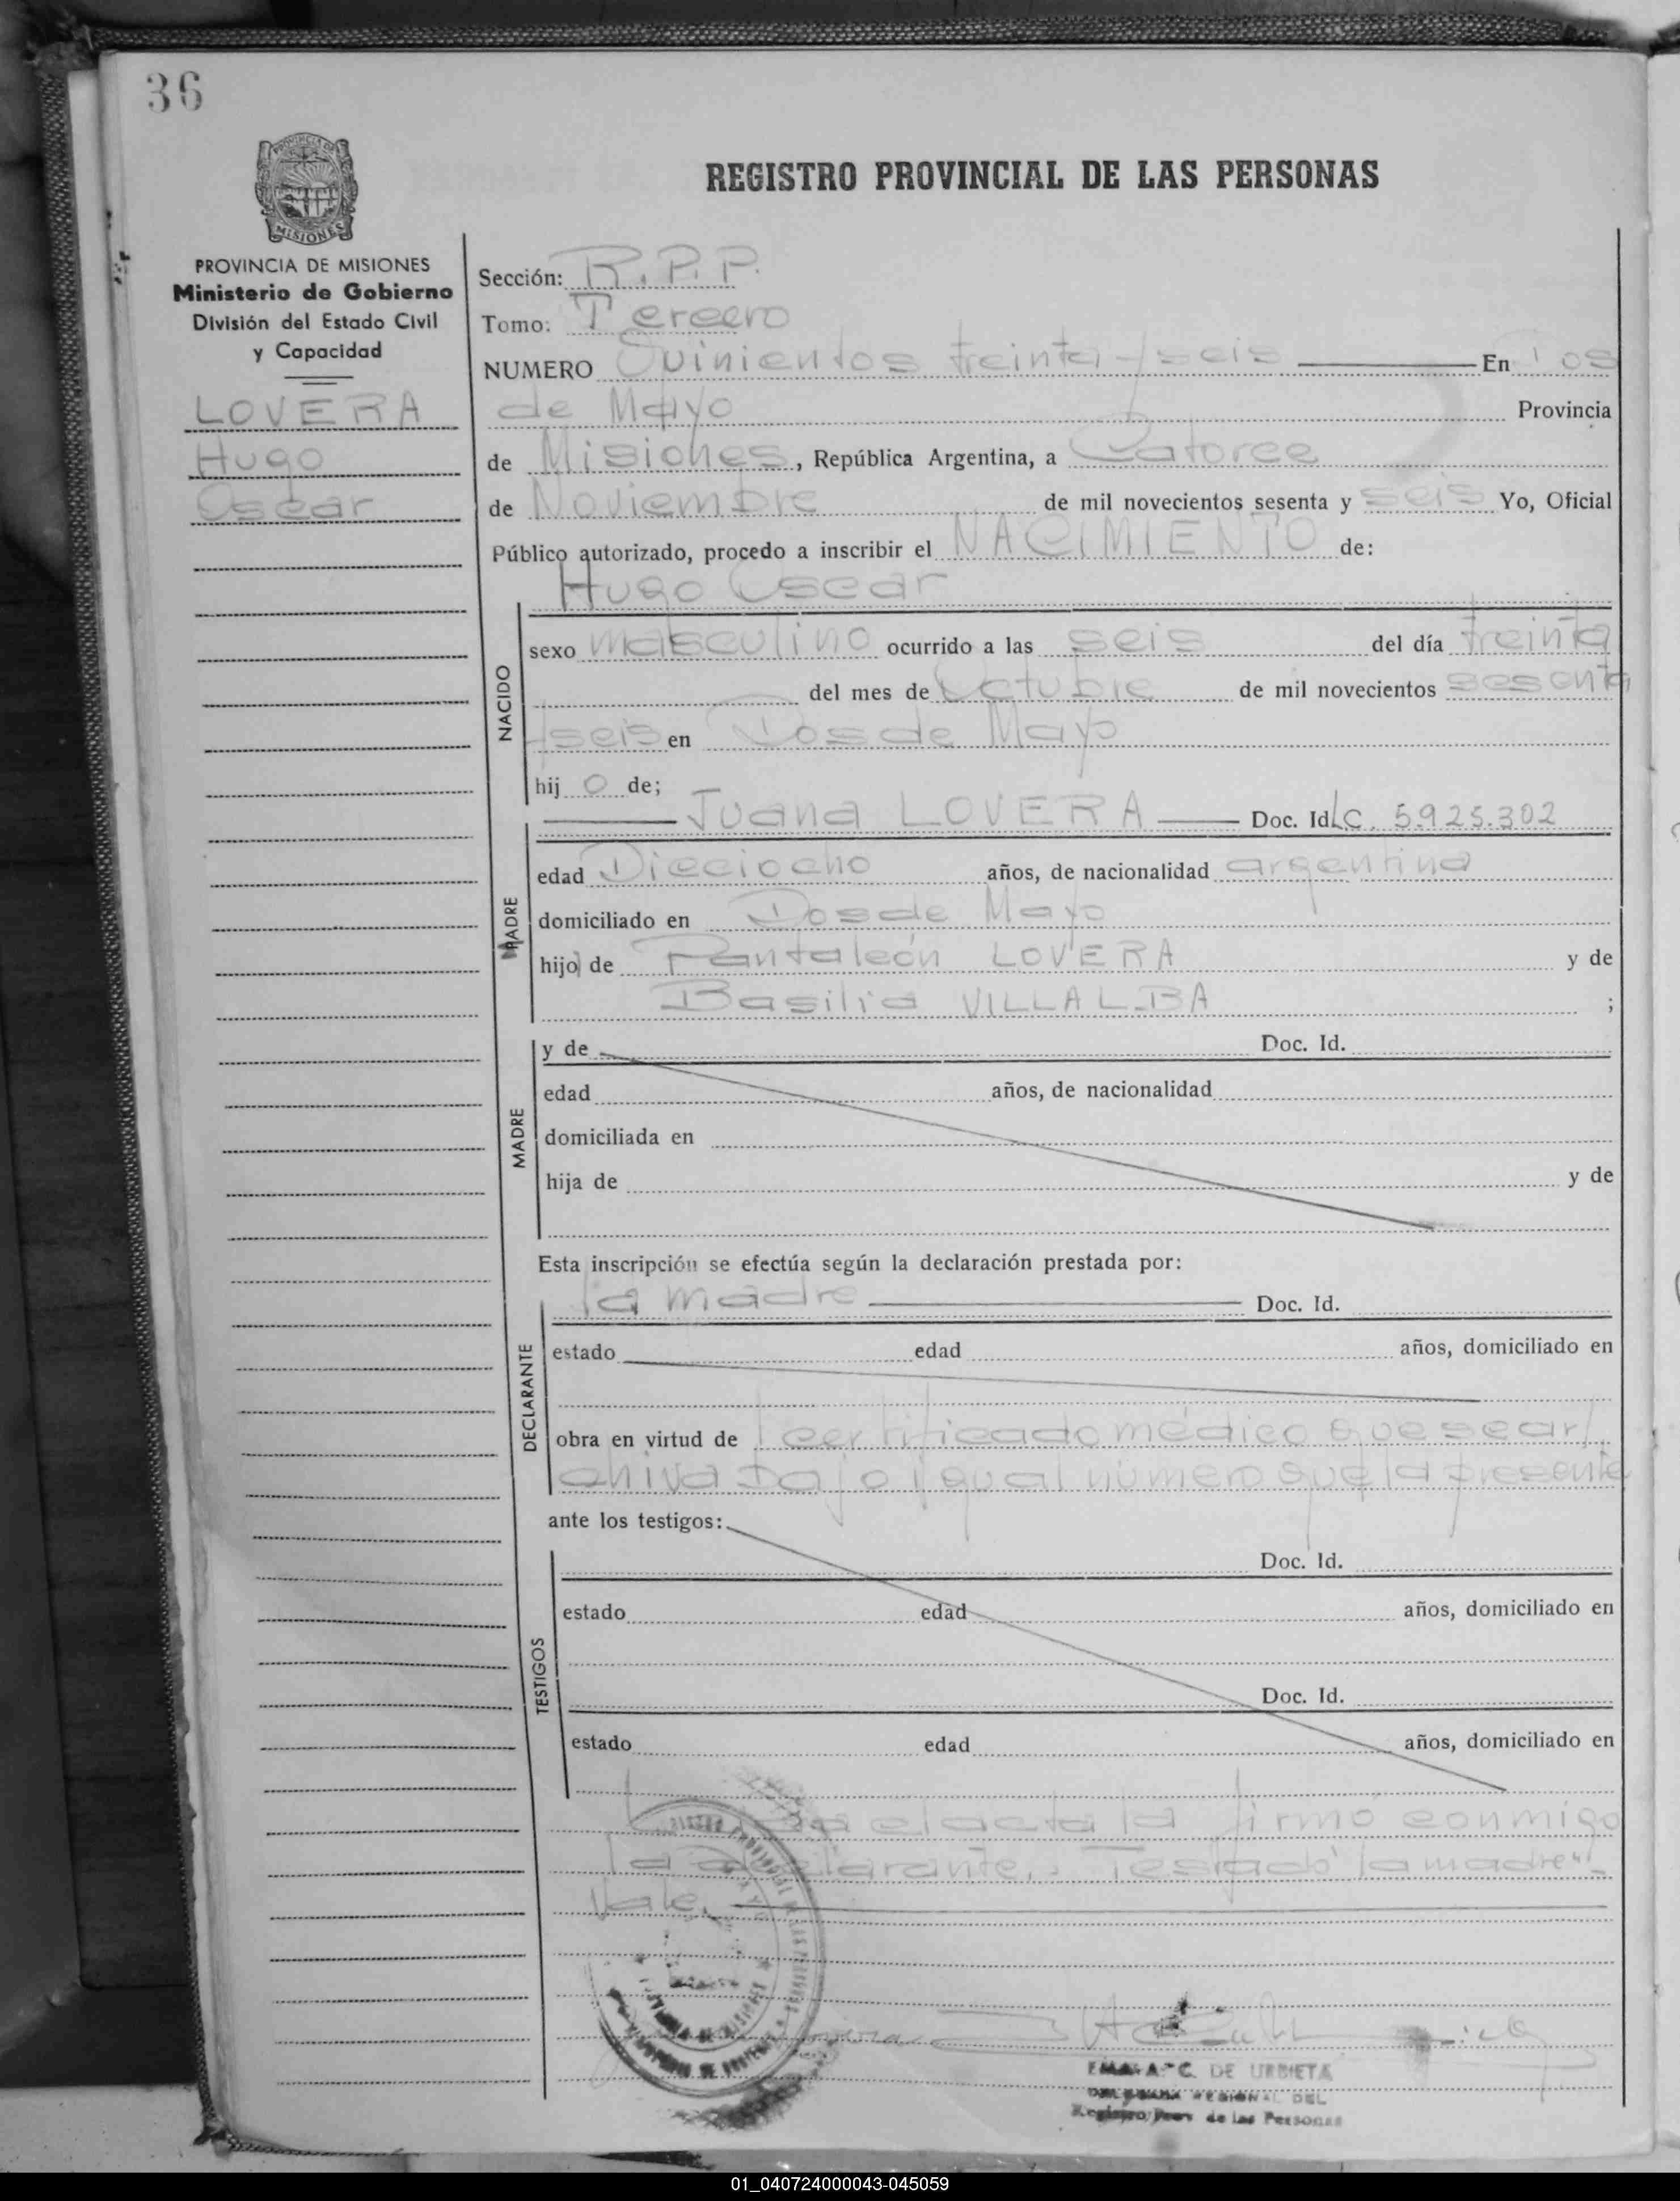 36
PROVINCIA DE
MISIONES
REGISTRO PROVINCIAL DE LAS PERSONAS
PROVINCIA DE MISIONES
Ministerio de Gobierno
División del Estado Civil
y Capacidad
LOVERA
Hugo
Oscar
Sección: R.P.P.
Tomo: Tercero
NUMERO Quinientos treinta y seis En Dos
de Mayo Provincia
de Misiones, República Argentina, a Catorce
de Noviembre de mil novecientos sesenta y seis Yo, Oficial
Público autorizado, procedo a inscribir el NACIMIENTO de:
Hugo Oscar
NACIDO
sexo masculino ocurrido a las seis del día treinta
del mes de Octubre de mil novecientos sesenta
y seis en Dos de Mayo
hij o de;
Juana LOVERA Doc. Id L.C. 5.925.302
MADRE
edad Dieciocho años, de nacionalidad argentina
domiciliado en Dos de Mayo
hijo de Pantaleón LOVERA y de
Basilia VILLALBA ;
MADRE
y de Doc. Id.
edad años, de nacionalidad
domiciliada en
hija de y de
Esta inscripción se efectúa según la declaración prestada por:
la madre Doc. Id.
DECLARANTE
estado edad años, domiciliado en
obra en virtud de certificado médico que se ar/
chiva bajo igual número que la presente
ante los testigos:
TESTIGOS
Doc. Id.
estado edad años, domiciliado en
Doc. Id.
estado edad años, domiciliado en
el acta la firmó conmigo
la declarante.- Testado "la madre"
Vale.
C. DE URBIETA
REGIONAL DEL
Registro Prov. de las Personas
01_040724000043-045059